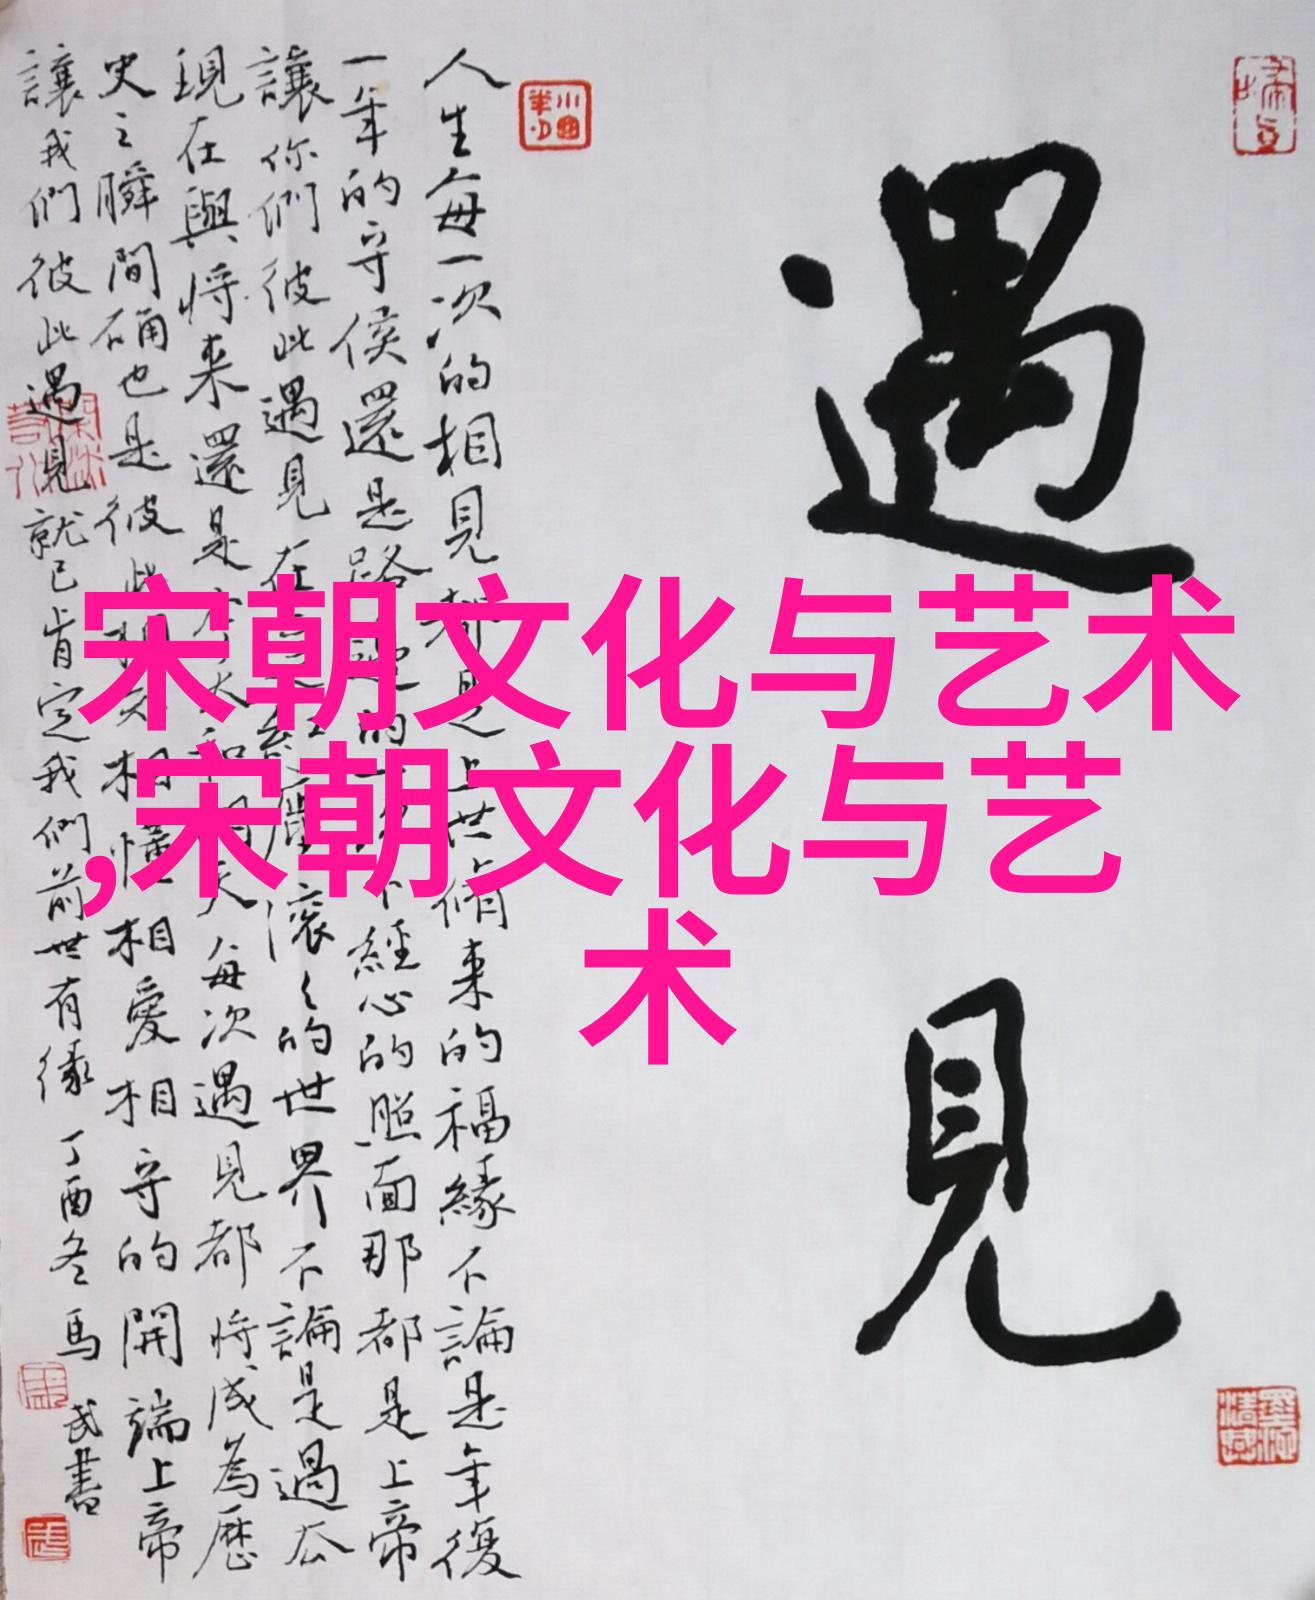 宋朝文化与艺术
,宋朝文化与艺
术
遇見
人生每一次的相見都是上世脩来的福緣不論是年復
一年的守侯還是路邊的一次不經心的照面那都是上帝
讓你們彼此遇見在滾々的世界不論是過去
現在與將来還是天和明天每次遇見都將成為歷
史之瞬間确也是彼此相惜相愛相守的開端上帝
讓我們彼此遇見就已肯定我們前世有缘 丁酉冬馬武書